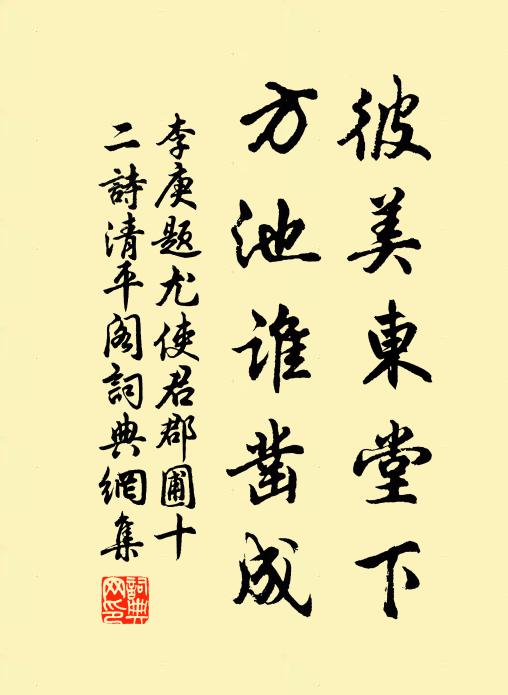 彼美東堂下
方池誰鑿成
李庚題尤使君郡圃十
二詩清平閣詞典網集
詞典
网印